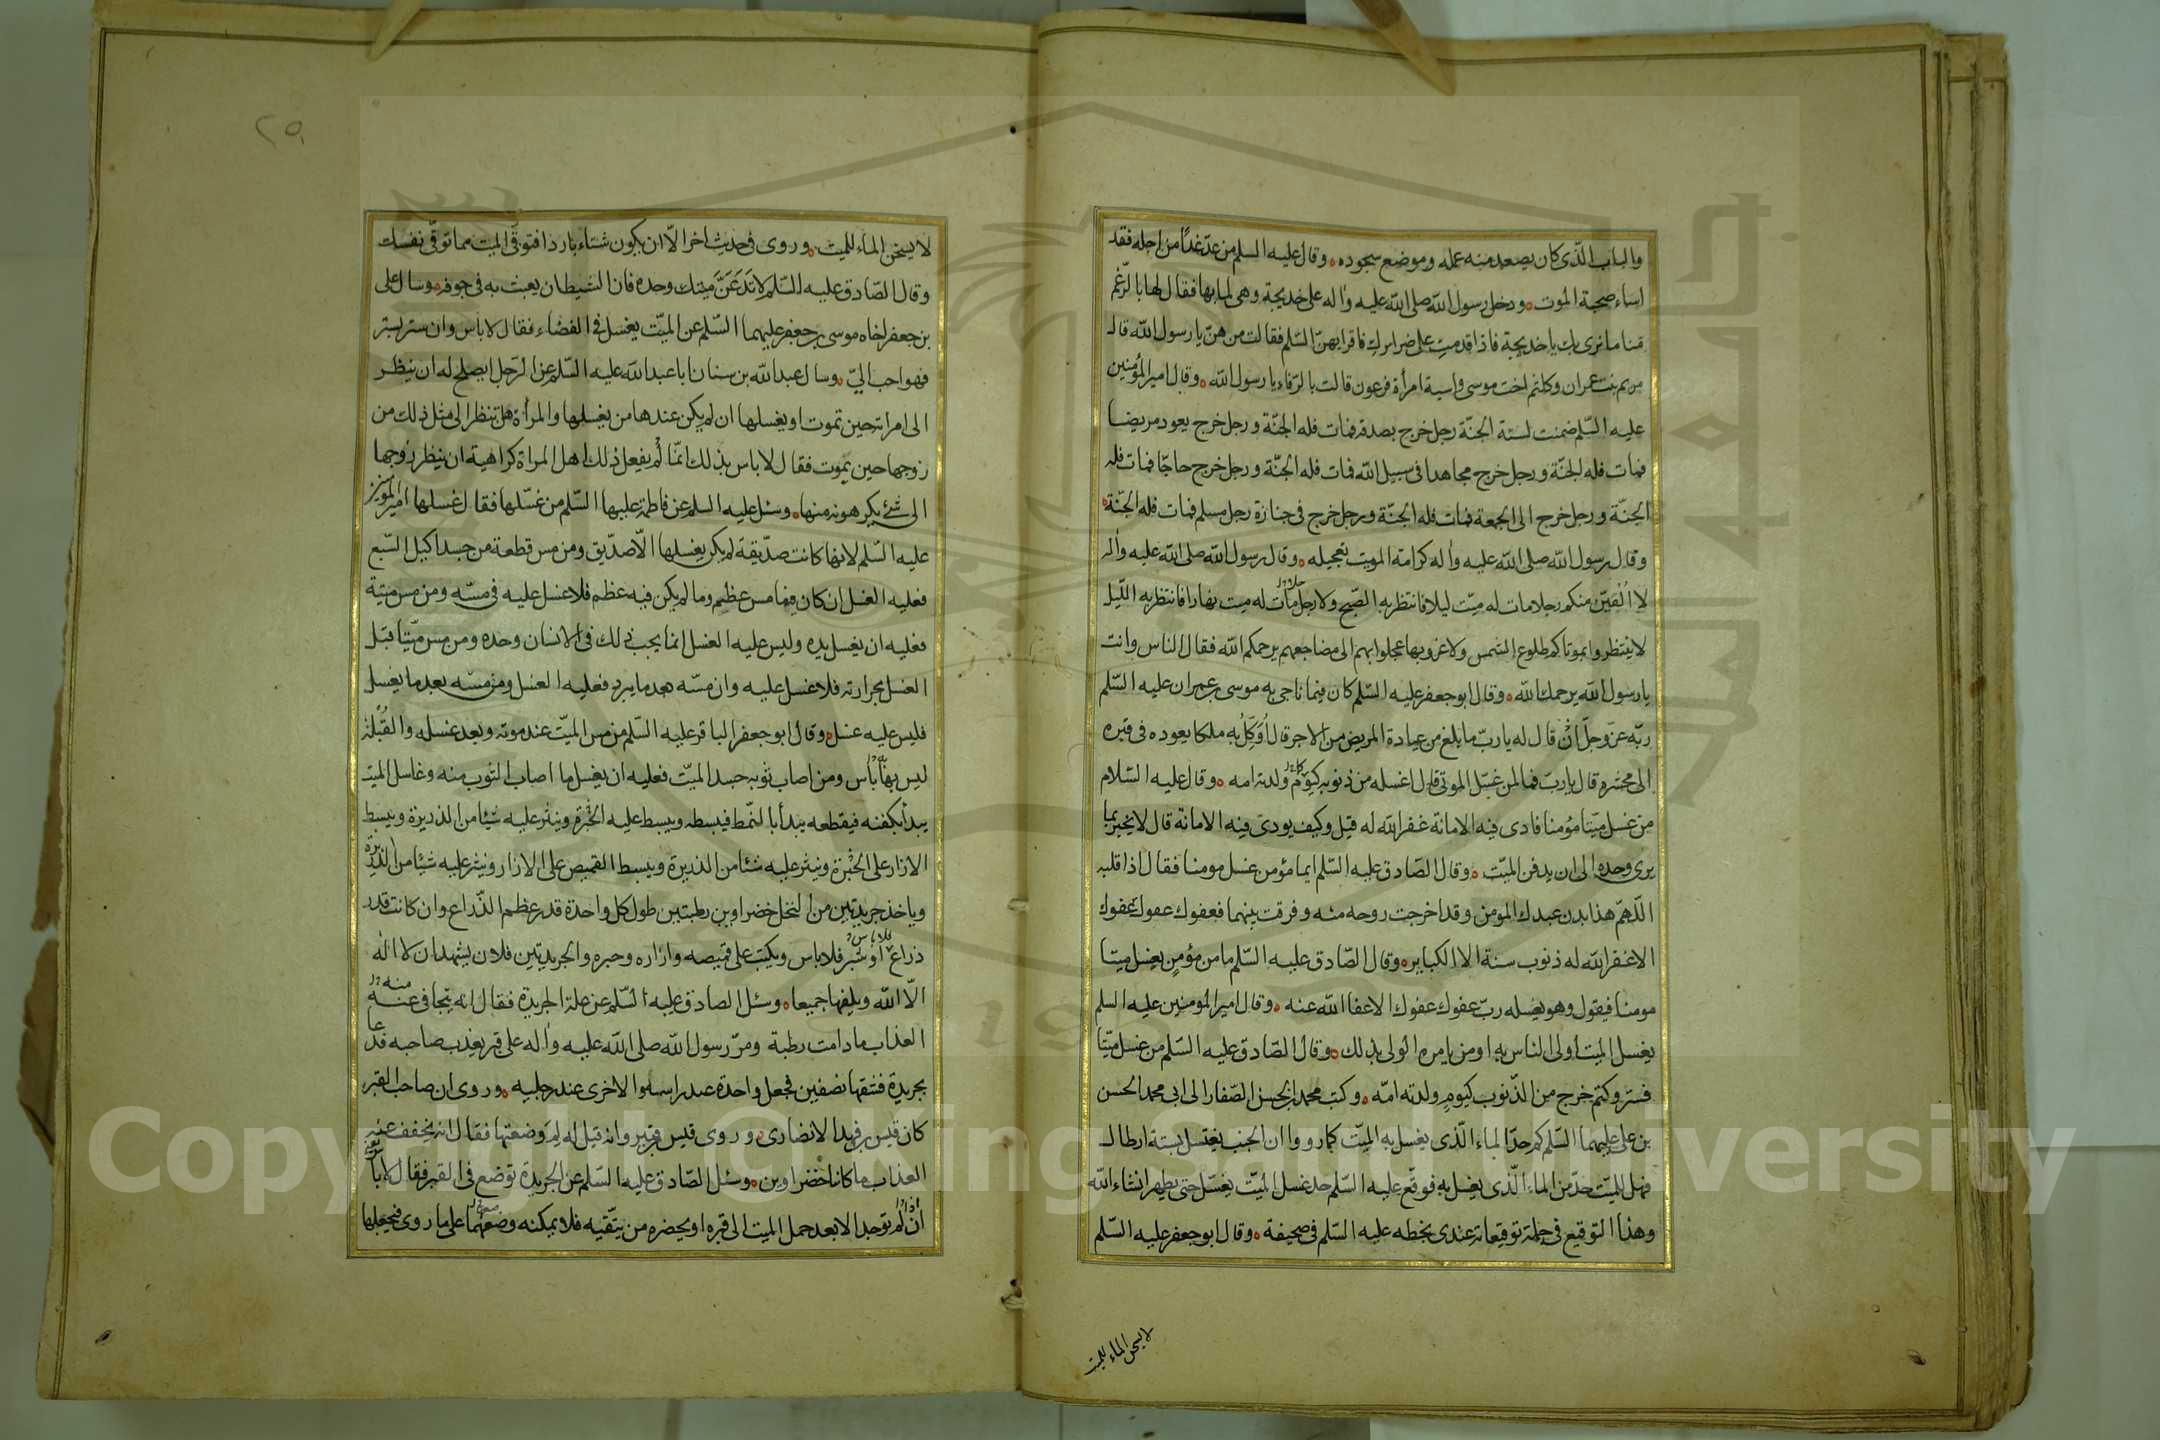 والباب الذّى كان يصعد منه عمله وموضع سجوده وقال عليه السلم من عدّ غدًا من اجله فقد
اساء صحبة الموت ودخل رسول الله صلى الله عليه واله على خديجة وهى لما بها فقال لها بالرّغم
منا ما نرى بك يا خديجة فاذا قدمت على ضرايرك فاقرايهنّ السّلم فقالت من هنّ يا رسول الله قال
مريم بنت عمران وكلثم اخت موسى واسية امرأة فرعون قالت بالرّفاء يا رسول الله وقال امير المؤمنين
عليه السّلم ضمنت لستة الجنّة رجل خرج بصدقه فمات فله الجنّة ورجل خرج يعود مريضا
فمات فله الجنّة ورجل خرج مجاهدا فى سبيل الله فمات فله الجنّة ورجل خرج حاجّا فمات فله
الجنّة ورجل خرج الى الجمعة فمات فله الجنّة ورجل خرج فى جنازة رجل مسلم فمات فله الجنّة
وقال رسول الله صلى الله عليه واله كرامة الميت تعجيله وقال رسول الله صلى الله عليه واله
لا الفينّ منكم رجلا مات له ميّت ليلا فانتظر به الصّبح ولا رجل مات له ميت نهارا فانتظر به اللّيل
لا ينتظروا بموتاكم طلوع الشمس ولا غروبها عجلوا بهم الى مضاجعهم يرحمكم الله فقال الناس وانت
يا رسول الله يرحمك الله وقال ابو جعفر عليه السّلم كان فيما ناجى به موسى بن عمران عليه السّلم
ربّه عزّ وجلّ ان قال له يا ربّ ما بلغ من عيادة المريض من الاجر قال اوكّل به ملكا يعوده فى قبره
الى محشره قال يا ربّ فما لمن غسّل الموتى قال اغسله من ذنوبه كيوم ولدته امه وقال عليه السّلام
من غسل ميّتا مؤمنا فادى فيه الامانة غفر الله له قيل وكيف يودى فيه الامانة قال لا يخبر بما
يرى وحده الى ان يدفن الميّت وقال الصّادق عليه السّلم ايما مؤمن غسل مومنا فقال اذا قلبه
اللّهمّ هذا بدن عبدك المومن وقد اخرجت روحه منه وفرقت بينهما فعفوك عفوك عفوك
الا غفر الله له ذنوب سنة الا الكباير وقال الصّادق عليه السّلم ما من مؤمن يغسل ميتا
مومنا فيقول وهو يغسله ربّ عفوك عفوك الا عفا الله عنه وقال امير المومنين عليه السلم
يغسل الميت اولى الناس به او من يامره الولى بذلك وقال الصّادق عليه السّلم من غسل ميّتا
فستر وكتم خرج من الذّنوب كيوم ولدته امّه وكتب محمد بن الحسن الصّفار الى ابى محمد الحسن
بن على عليهما السّلم كم حدّ الماء الّذى يغسل به الميّت كما رووا ان الجنب يغتسل بستة ارطال
فهل للميّت حدّ من الماء الّذى يغسل به فوقّع عليه السّلم حد غسل الميّت يغسّل حتى يطهر انشاء الله
وهذا التوقيع فى جملة توقيعاته عندى بخطه عليه السّلم فى صحيفة وقال ابو جعفر عليه السّلم
لا يسخن الماء للميت
لا يسخن الماء للميّت وروى فى حديث اخر الّا ان يكون شتاء باردا فتوقى الميت مما توقّى نفسك
وقال الصّادق عليه السّلم لا تدعنّ ميتك وحده فان الشيطان يعبث به فى جوفه وسال على
بن جعفر اخاه موسى بن جعفر عليهما السّلم عن الميّت يغسل فى الفضاء فقال لا باس وان ستر بستر
فهو احب الىّ وسال عبد الله بن سنان ابا عبد الله عليه السّلم عن الرّجل ايصلح له ان ينظر
الى امراته حين تموت او يغسلها ان لم يكن عندها من يغسلها والمرأة هل تنظر الى مثل ذلك من
زوجها حين يموت فقال لا باس بذلك انمّا لم يفعل ذلك اهل المراة كراهية ان ينظر زوجها
الى شئ يكرهونه منها وسئل عليه السلم عن فاطمة عليها السّلم من غسّلها فقال غسلها امير المؤمنين
عليه السّلم لانها كانت صدّيقة لم يكن يغسلها الّا صدّيق ومن مس قطعة من جسد اكيل السّبع
فعليه الغسل ان كان فيما مس عظم وما لم يكن فيه عظم فلا غسل عليه فى مسّه ومن مس ميتة
فعليه ان يغسل يده وليس عليه الغسل انما يجب ذلك فى الانسان وحده ومن مس ميّتا قبل
الغسل بحرارته فلا غسل عليه وان مسّه بعد ما يبرد فعليه الغسل ومن مسّه بعد ما يغسل
فليس عليه غسل وقال ابو جعفر الباقر عليه السّلم من مس الميّت عند موته وبعد غسله والقبلة
ليس بها بأس ومن اصاب ثوبه جسد الميّت فعليه ان يغسل ما اصاب الثوب منه وغاسل الميت
يبدأ بكفنه فيقطعه يبدأ بالنّمط فيبسطه ويبسط عليه الحبرة وينثر عليه شيئا من الذريرة ويبسط
الازار على الحبرة وينثر عليه شئا من الذريرة ويبسط القميص على الازار وينثر عليه شيئا من الذريرة
وياخذ جريدتين من النخل خضراوين رطبتين طول كل واحدة قدر عظم الذّراع وان كانت قدر
ذراع او شبر فلا باس ويكتب على قميصه وازاره وحبره والجريدتين فلان يشهد ان لا اله
الّا الله ويلفها جميعا وسئل الصادق عليه السّلم عن علة الجريدة فقال انه يتجافى عنه
العذاب ما دامت رطبة ومرّ رسول الله صلى الله عليه واله على قبر يعذب صاحبه فدعا
بجريدة فشقها نصفين فجعل واحدة عند راسه والاخرى عند رجليه وروى ان صاحب القبر
كان قيس بن فهد الانصارى وروى قيس بن قمير وانه قيل له لم وضعتها فقال انه يخفف عنه
العذاب ما كانا خضراوين وسئل الصّادق عليه السّلم عن الجريدة توضع فى القبر فقال لا بأس
ان لم توجد الا بعد حمل الميت الى قبره او يحضره من يتّقيه فلا يمكنه وضعهما على ما روى فيجعلها
Copyright © King Saud University